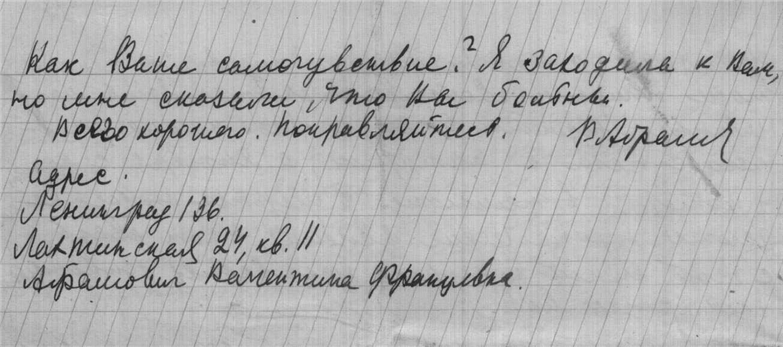 Как Ваше самочувствие? Я заходила к Вам,
но мне сказали что Вы больны.
Всего хорошего. Поправляйтесь. В Абрам
Адрес.
Ленинград 136.
Лахтинская 24, кв. 11
Абрамович Валентина Францевна.